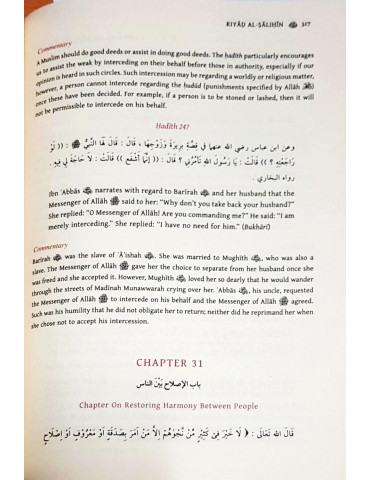 RIYĀḌ AL-ṢĀLIḤĪN ﷺ 317
Commentary
A Muslim should do good deeds or assist in doing good deeds. The ḥadīth particularly encourages
us to assist the weak by interceding on their behalf before those in authority, especially if our
opinion is heard in such circles. Such intercession may be regarding a worldly or religious matter,
however, a person cannot intercede regarding the ḥudūd (punishments specified by Allāh ﷻ)
once these have been decided. For example, if a person is to be stoned or lashed, then it will
not be permissible to intercede on his behalf.
Ḥadīth 247
وعن ابن عباس رضي الله عنهما في قصة بريرة وزوجها ، قال : قال لها النبي ﷺ : (( لو
راجعته ؟ )) قالت : يا رسول الله تأمرني ؟ قال : (( إنما أشفع )) قالت : لا حاجة لي فيه .
رواه البخاري .
Ibn ʿAbbās narrates with regard to Barīrah and her husband that the
Messenger of Allāh ﷺ said to her: "Why don't you take back your husband?"
She replied: "O Messenger of Allāh! Are you commanding me?" He said: "I am
merely interceding." She replied: "I have no need for him." (Bukhārī)
Commentary
Barīrah was the slave of ʿĀ'ishah. She was married to Mughīth, who was also a
slave. The Messenger of Allāh ﷺ gave her the choice to separate from her husband once she
was freed and she accepted it. However, Mughīth loved her so dearly that he would wander
through the streets of Madīnah Munawwarah crying over her. ʿAbbās, his uncle, requested
the Messenger of Allāh ﷺ to intercede on his behalf and the Messenger of Allāh ﷺ agreed.
Such was his humility that he did not obligate her to return; neither did he reprimand her when
she chose not to accept his intercession.
CHAPTER 31
باب الإصلاح بَيْنَ الناس
Chapter On Restoring Harmony Between People
قَالَ اللهُ تَعَالَى : ﴿ لَا خَيْرَ فِي كَثِيْرٍ مِّنْ نَّجْوٰهُمْ إِلَّا مَنْ أَمَرَ بِصَدَقَةٍ أَوْ مَعْرُوْفٍ أَوْ إِصْلَاحٍ